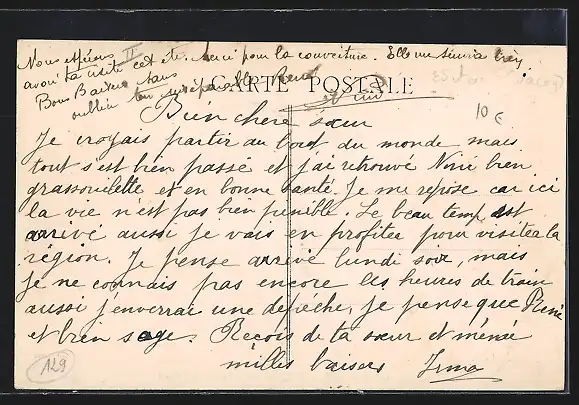 Nous espérons II
avoir ta visite cet été. Merci pour la couverture. Elle me servira bien.
Bons Baisers sans
oublier ton inséparable
CARTE POSTALE
10 €
Bien chère sœur
Je croyais partir au bout du monde mais
tout s'est bien passé et j'ai retrouvé Ninie bien
grassouillette et en bonne santé. Je me repose car ici
la vie n'est pas bien pénible. Le beau temp est
arrivé aussi je vais en profiter pour visiter la
région. Je pense arrivé lundi soir, mais
je ne connais pas encore les heures de train
aussi j'enverrai une dépêche, je pense que René
et bien sage. Reçois de ta sœur et ménée
milles baisers Irma
129